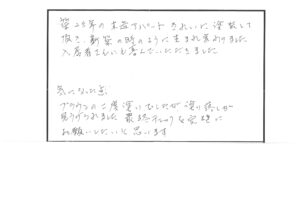 築25年の木造アパート きれいに塗装して
頂き、新築の時のように生まれ変わりました
入居者さんにも喜んでいただきました
気になった点
ブラウンの二度塗りでしたが塗り残しが
見うけられました 最終チェックを完璧に
お願いしたいと思います